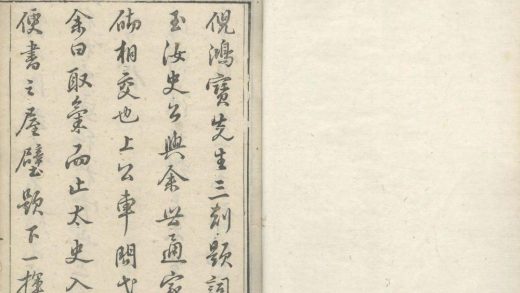 倪鴻寶先生三刻題詞
玉汝史公與余世通家
砌相交也上公車問戈
余曰取氣而止太史入
便書之屋壁題下一揮